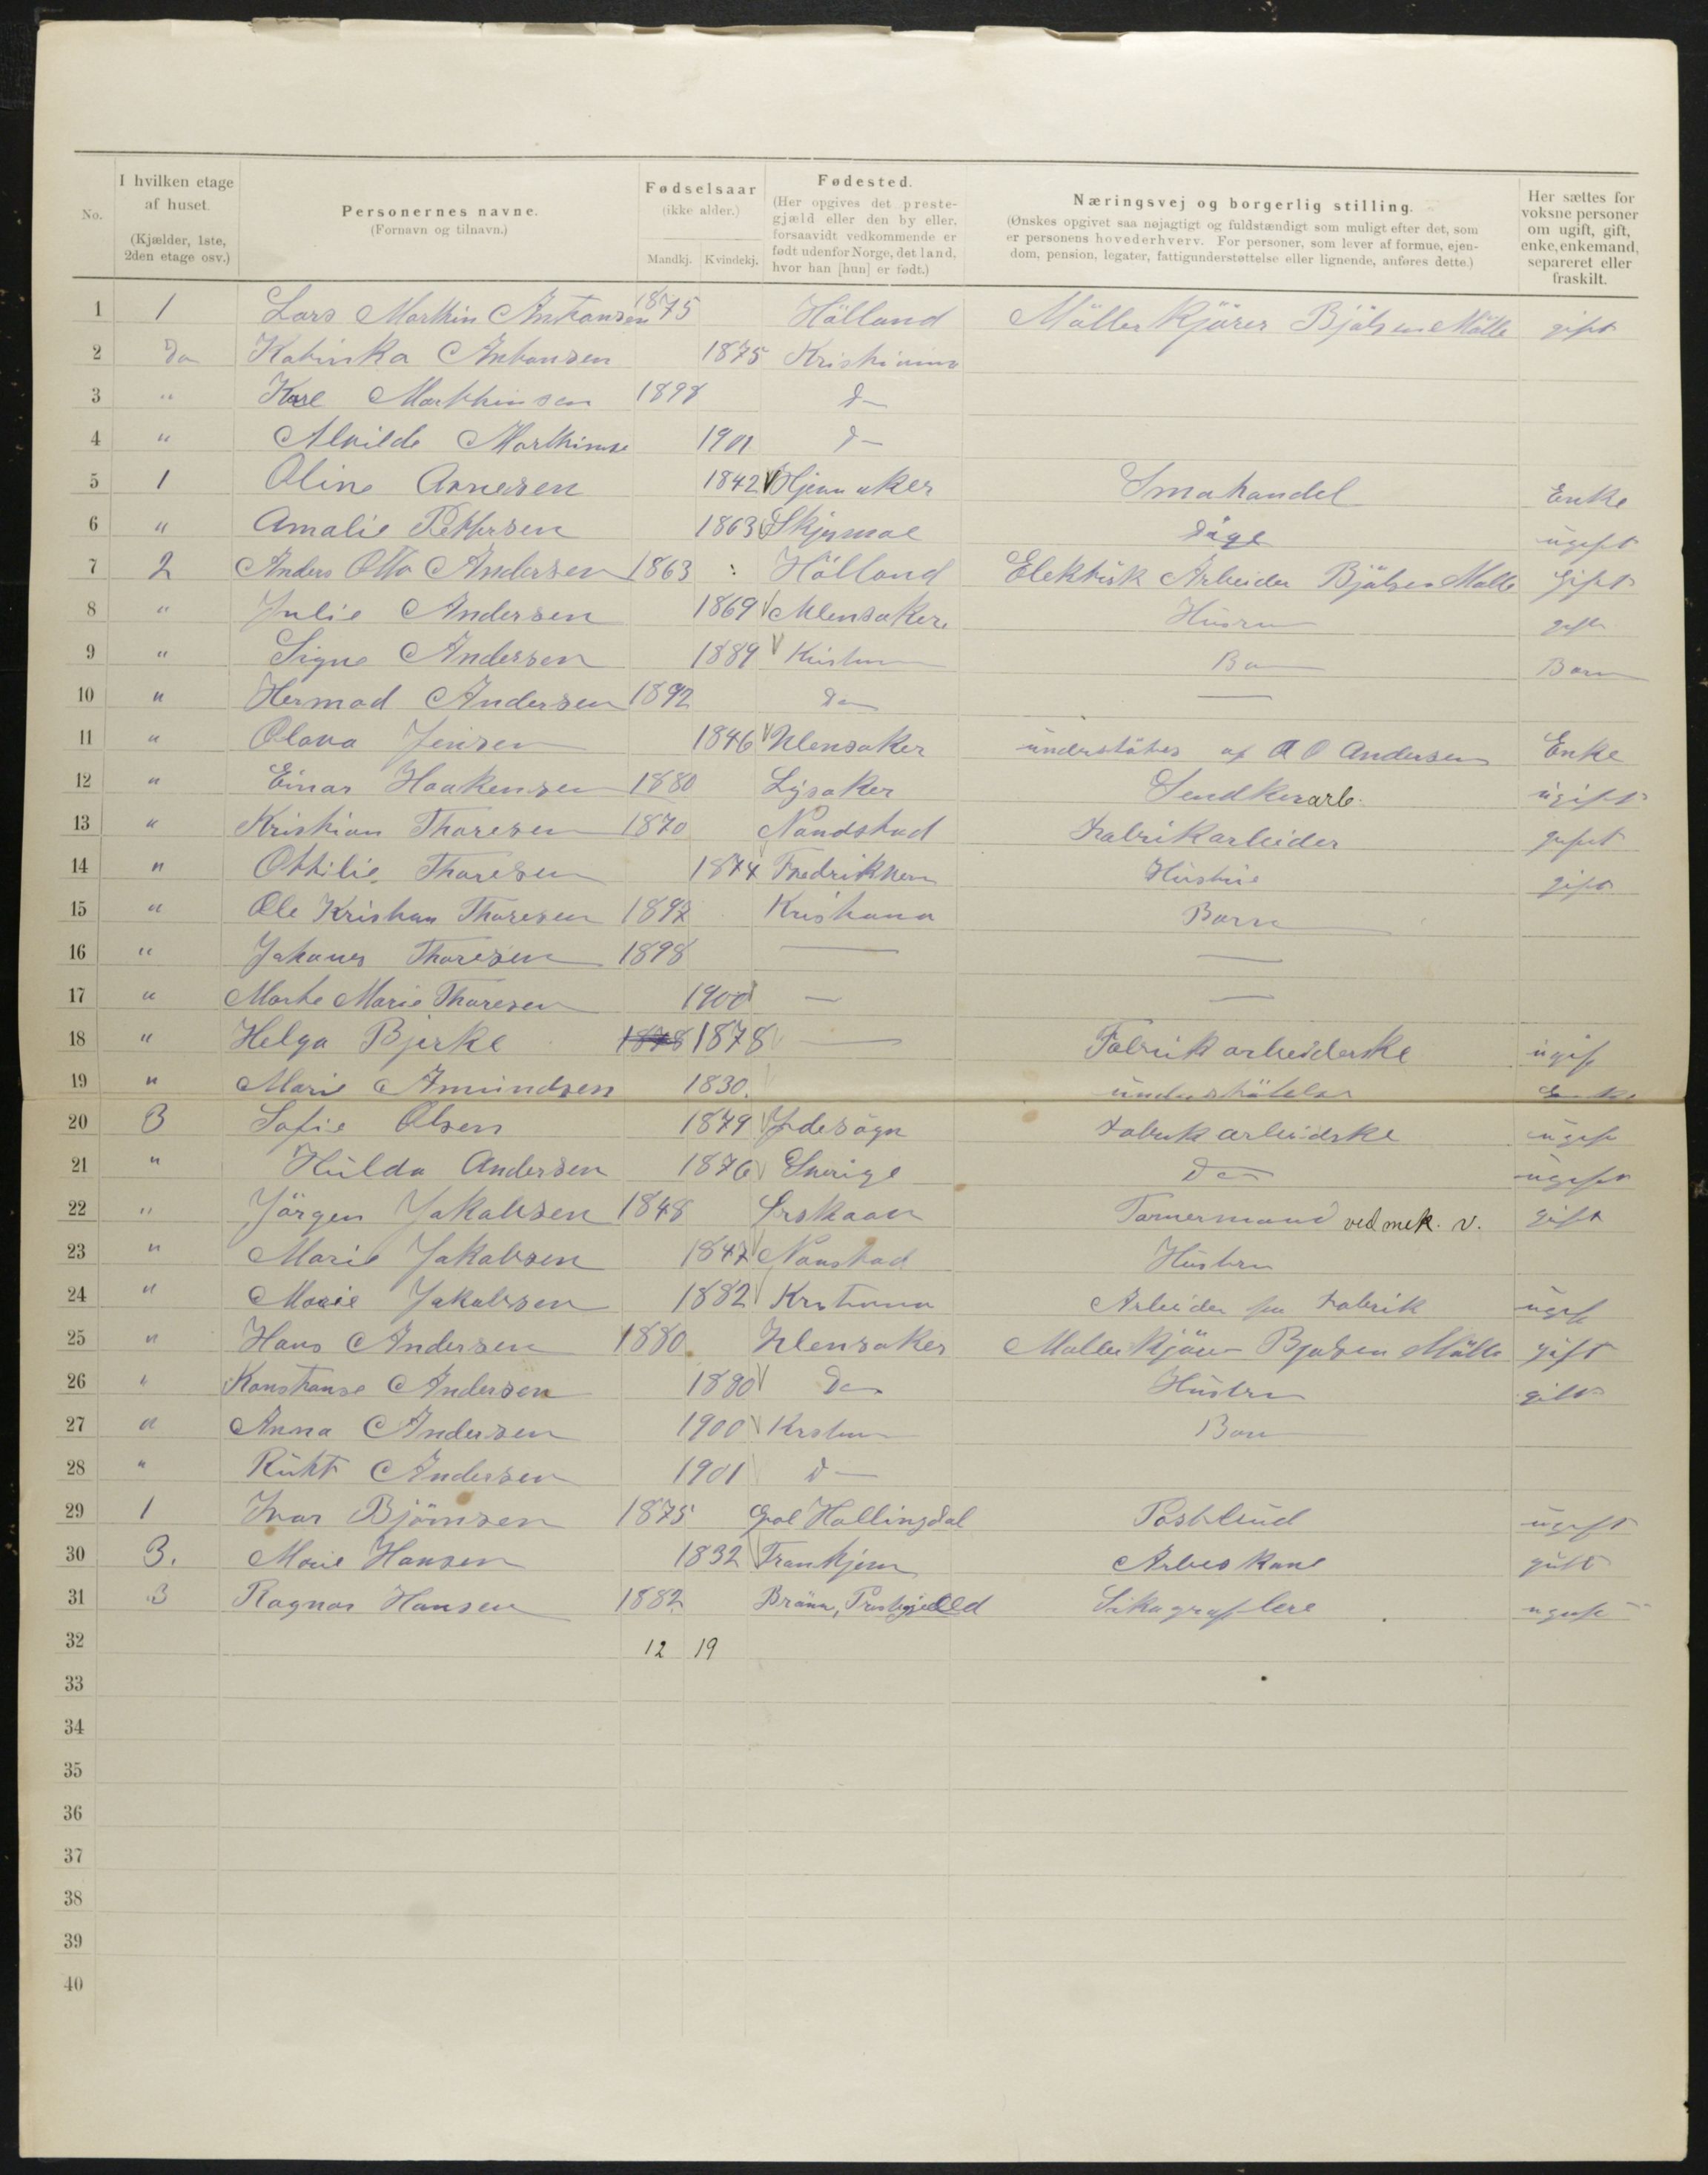 No.
I hvilken etage af huset. (Kjælder, 1ste, 2den etage osv.)
Personernes navne. (Fornavn og tilnavn.)
Fødselsaar (ikke alder.) Mandkj. Kvindekj.
Fødested. (Her opgives det prestegjæld eller den by eller, forsaavidt vedkommende er født udenfor Norge, det land, hvor han [hun] er født.)
Næringsvej og borgerlig stilling. (Ønskes opgivet saa nøjagtigt og fuldstændigt som muligt efter det, som er personens hovederhverv. For personer, som lever af formue, ejendom, pension, legater, fattigunderstøttelse eller lignende, anføres dette.)
Her sættes for voksne personer om ugift, gift, enke, enkemand, separeret eller fraskilt.
1 1 Lars Marthin Anthonsen 1875 Hölland Möller Kjörer Bjölsen Mölle gift
2 Do Kathinka Anthonsen 1875 Kristiania
3 " Karl Marthinsen 1898 d—
4 " Alvilde Marthinse 1901 d—
5 1 Oline Arnesen 1842 Smahandel Enke
6 " Amalie Pettersen 1863 ugift
7 2 Anders Otto Andersen 1863 Hölland Elektrisk Arbeider Bjölsen Mølle Gift
8 " Julie Andersen 1869 Ullensaker Hüstru gift
9 " Signe Andersen 1889 Kristiania Barn Barn
10 " Hermod Andersen 1892 do —
11 " Olava Jensen 1846 Ullensaker understötes af A O Andersen Enke
12 " Einar Haakensen 1880 Lysaker arb. ugift
13 " Kristian Thoresen 1870 Nandstad Fabrikarbeider gift
14 " Othilie Thoresen 1874 Hustrue gift
15 " Ole Kristian Thoresen 1897 Kristiana Barn
16 " Johanes Thoresen 1898 — —
17 " Marthe Marie Thoresen 1900 — —
18 " Helga Bjerke 1878 1878 — Fabrik arbeiderske ugift
19 " Marie Amundsen 1830. understötelse Enke
20 3 Sofie Olsen 1879 Idesogn Fabrik arbeidske ugift
21 " Hulda Andersen 1876 Sverige Do ugift
22 " Jörgen Jakobsen 1848 Tomermand ved mek. v. gift
23 " Marie Jakobsen 1847 Nanstad Hustru
24 " Marie Jakobsen 1882 Kristiania Arbeider paa Fabrik ugift
25 " Hans Andersen 1880 Ullensaker Møller Kjörer Bjølsen Mölle gift
26 " Konstanse Andersen 1880 Do Hustru gift
27 " Anna Andersen 1900 Kristiania Barn
28 " Ruht Andersen 1901 d—
29 1 Ivar Björnsen 1875 Gol Hallingdal Postbud ugift
30 3. Marie Hansen 1832 Trankjem Arbeskone gift
31 3 Ragnar Hansen 1882 ugift
32 12 19
33
34
35
36
37
38
39
40